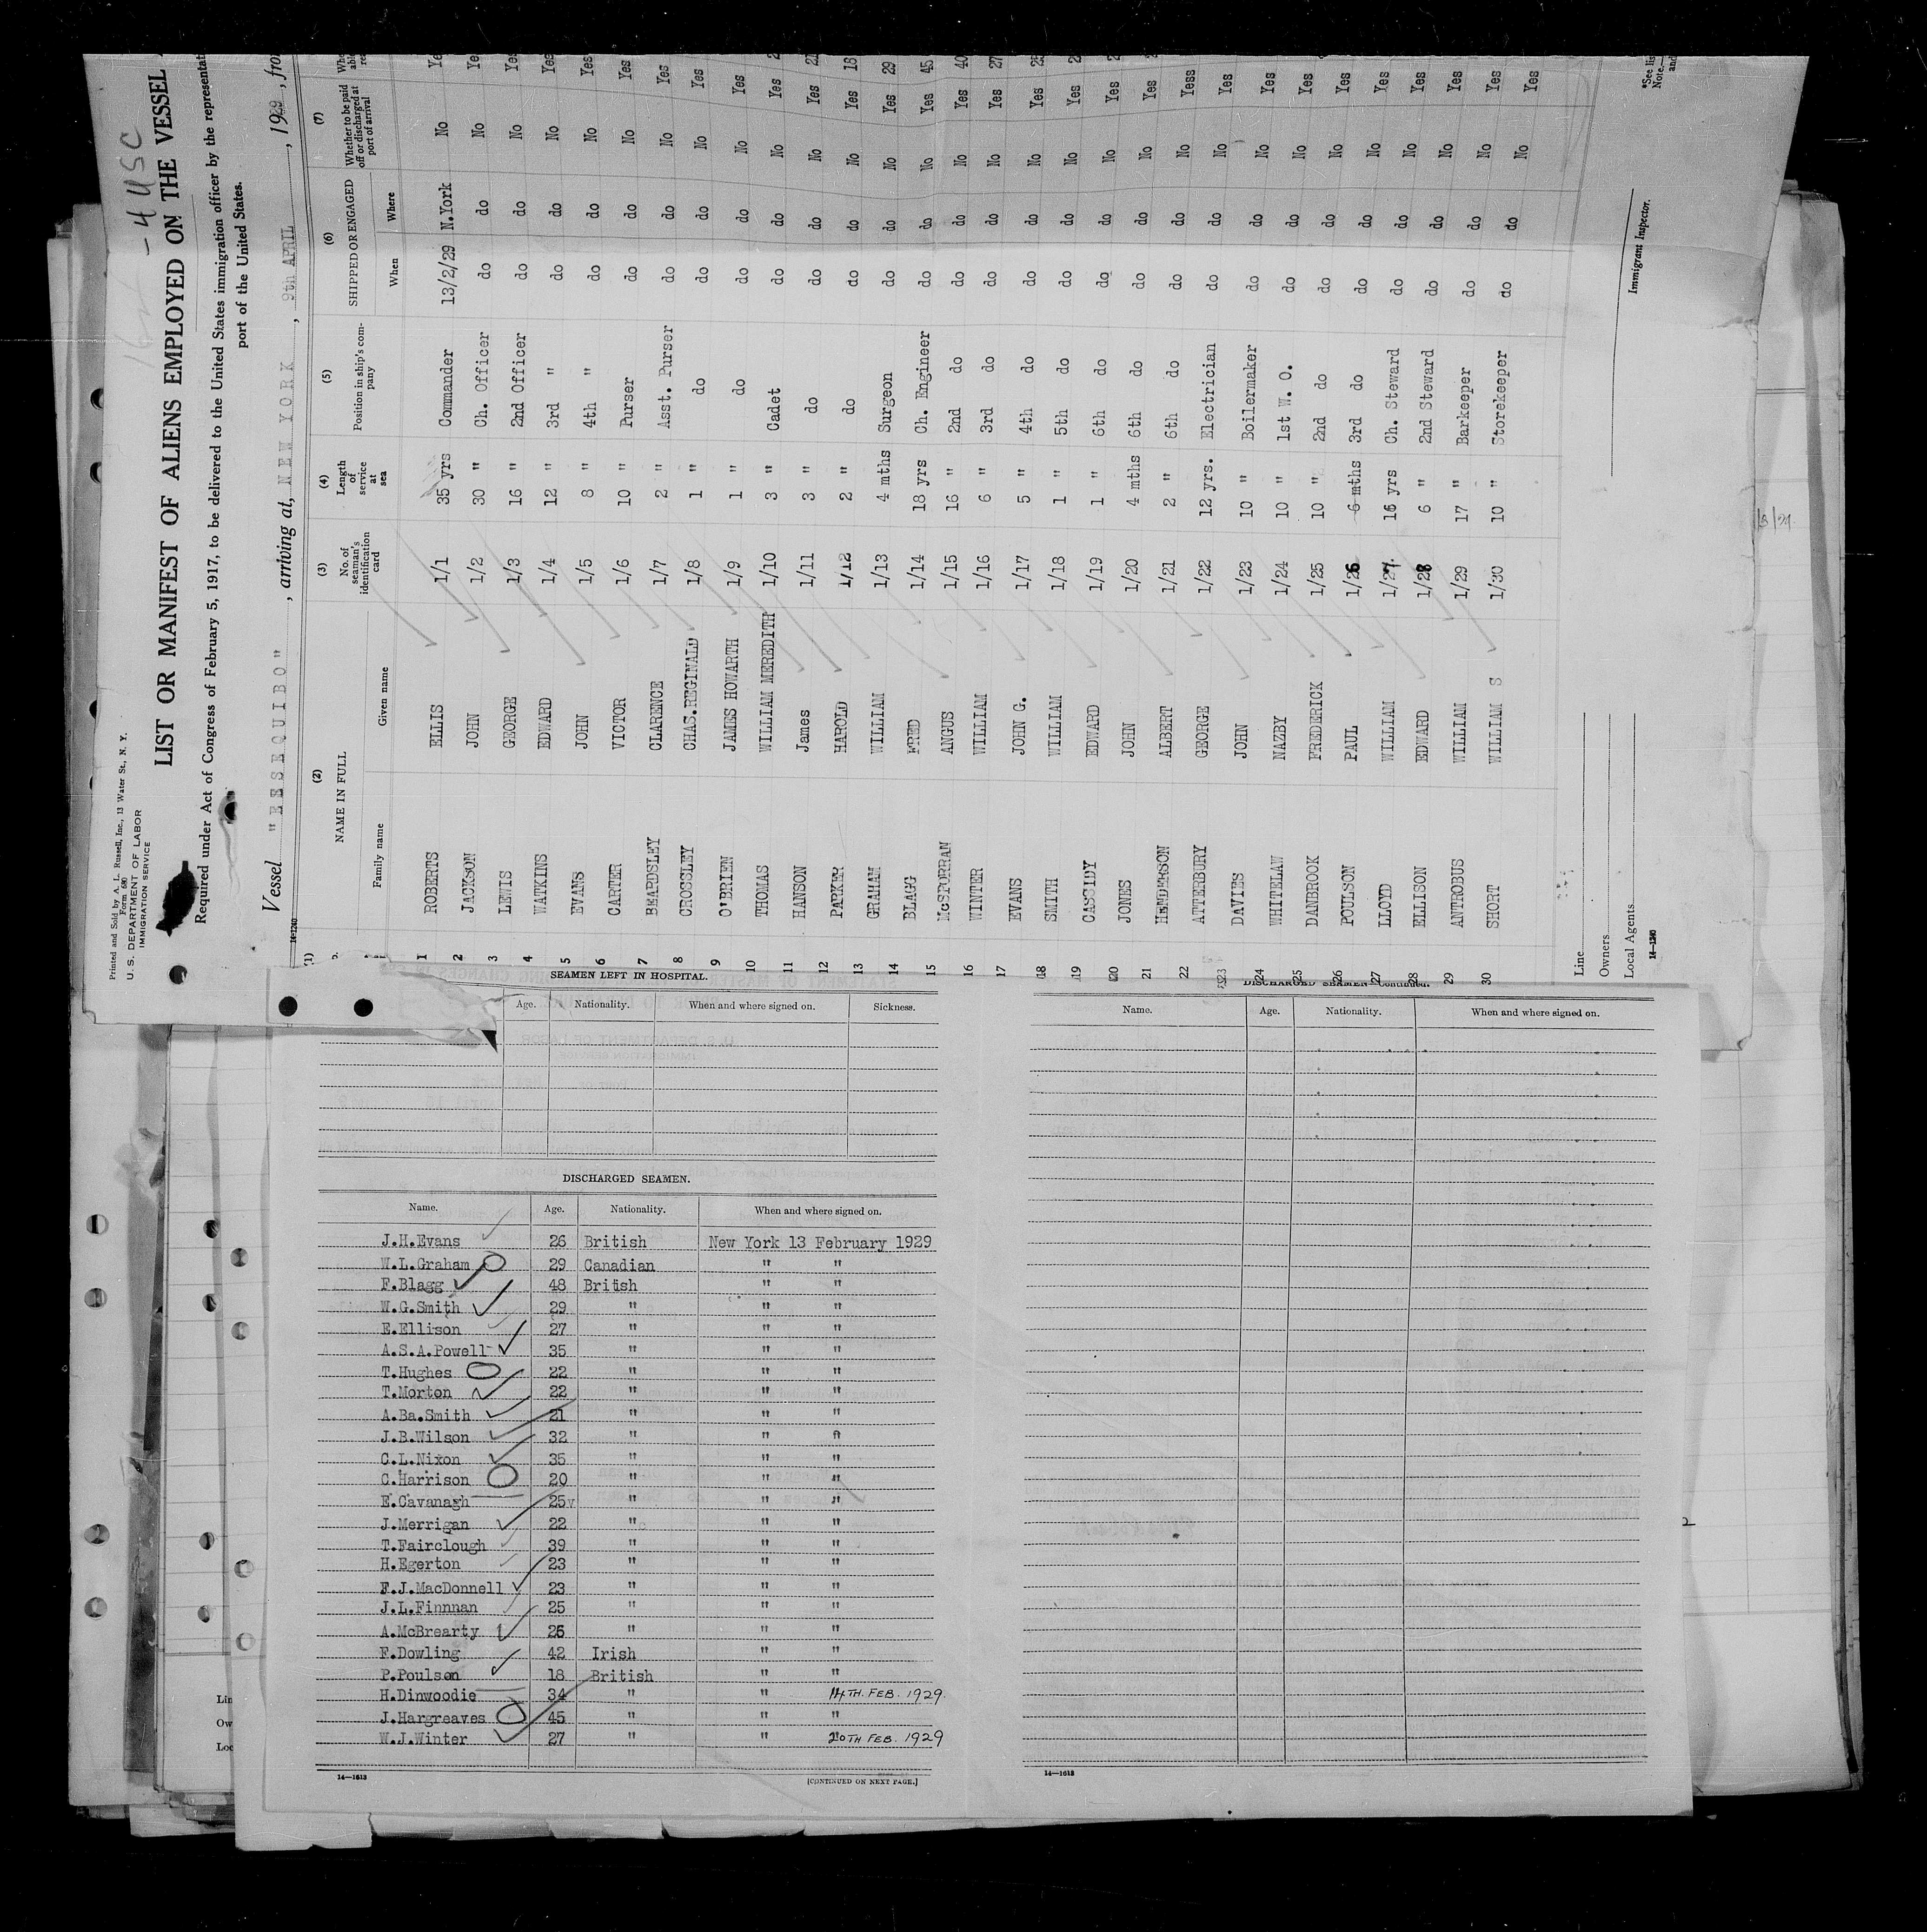 Printed and Sold by A. L. Russell, Inc., 13 Water St., N. Y.
Form 680
U. S. DEPARTMENT OF LABOR
IMMIGRATION SERVICE
- 4 USC
LIST OR MANIFEST OF ALIENS EMPLOYED ON THE VESSEL
Required under Act of Congress of February 5, 1917, to be delivered to the United States immigration officer by the representat
port of the United States.
Vessel "ESSEQUIBO", arriving at, NEW YORK, 9th APRIL, 1929, fro
14-1240
(1) (2) (3) (4) (5) (6) (7)
NAME IN FULL No. of seaman's identification card Length of service at sea Position in ship's company SHIPPED OR ENGAGED Whether to be paid off or discharged at port of arrival
Family name Given name When Where
1 ROBERTS ELLIS 1/1 35 yrs Commander 13/2/29 N.York No Ye
2 JACKSON JOHN 1/2 30 " Ch. Officer do do No Ye
3 LEWIS GEORGE 1/3 16 " 2nd Officer do do No Yes
4 WATKINS EDWARD 1/4 12 " 3rd " do do No Yes
5 EVANS JOHN 1/5 8 " 4th " do do No Yes
6 CARTER VICTOR 1/6 10 " Purser do do No Yes
7 BEARDSLEY CLARENCE 1/7 2 " Asst. Purser do do No Yes
8 CROSSLEY CHAS.REGINALD 1/8 1 " do do do No Yes
9 O'BRIEN JAMES HOWARTH 1/9 1 " do do do No Yes
10 THOMAS WILLIAM MEREDITH 1/10 3 " Cadet do do No Yes 2
11 HANSON James 1/11 3 " do do do No Yes 21
12 PARKER HAROLD 1/12 2 " do do do No Yes 18
13 GRAHAM WILLIAM 1/13 4 mths Surgeon do do No Yes 29
14 BLAGG FRED 1/14 18 yrs Ch. Engineer do do No Yes 45
15 McSPORRAN ANGUS 1/15 16 " 2nd do do do No Yes 40
16 WINTER WILLIAM 1/16 6 " 3rd do do do No Yes 27
17 EVANS JOHN G. 1/17 5 " 4th do do do No Yes 25
18 SMITH WILLIAM 1/18 1 " 5th do do do No Yes 2
19 CASSIDY EDWARD 1/19 1 " 6th do do do No Yes 2
20 JONES JOHN 1/20 4 mths 6th do do do No Yes
21 HENDERSON ALBERT 1/21 2 " 6th do do do No Yess
22 ATTERBURY GEORGE 1/22 12 yrs. Electrician do do No Yes
23 DAVIES JOHN 1/23 10 " Boilermaker do do No Yes
24 WHITELAW NAZBY 1/24 10 " 1st W. O. do do No Yes
25 DANBROOK FREDERICK 1/25 10 " 2nd do do do No Yes
26 POULSON PAUL 1/26 6 mths 3rd do do do No Yes
27 LLOYD WILLIAM 1/27 16 yrs Ch. Steward do do No Yes
28 ELLISON EDWARD 1/28 6 " 2nd Steward do do No Yes
29 ANTROBUS WILLIAM 1/29 17 " Barkeeper do do No Yes
30 SHORT WILLIAM S 1/30 10 " Storekeeper do do No Yes
Line
Owners
Local Agents
14-1240
Immigrant Inspector.
*See lis
Note.—
and
SEAMEN LEFT IN HOSPITAL.
Age. Nationality. When and where signed on. Sickness.
DISCHARGED SEAMEN.
Name. Age. Nationality. When and where signed on.
J.H.Evans 26 British New York 13 February 1929
W.L.Graham 29 Canadian " "
F.Blagg 48 British " "
W.G.Smith 29 " " "
E.Ellison 27 " " "
A.S.A.Powell 35 " " "
T.Hughes 22 " " "
T.Morton 22 " " "
A.Ba.Smith 21 " " "
J.B.Wilson 32 " " "
C.L.Nixon 35 " " "
C.Harrison 20 " " "
E.Cavanagh 25 " " "
J.Merrigan 22 " " "
T.Fairclough 39 " " "
H.Egerton 23 " " "
F.J.MacDonnell 23 " " "
J.L.Finnnan 25 " " "
A.McBrearty 26 " " "
F.Dowling 42 Irish " "
P.Poulson 18 British " "
H.Dinwoodie 34 " " 14TH. FEB. 1929.
J.Hargreaves 45 " " "
W.J.Winter 27 " " 20TH FEB. 1929
14—1613
[CONTINUED ON NEXT PAGE.]
DISCHARGED SEAMEN—Continued.
Name. Age. Nationality. When and where signed on.
14—1613
Lin
Ow
Loc